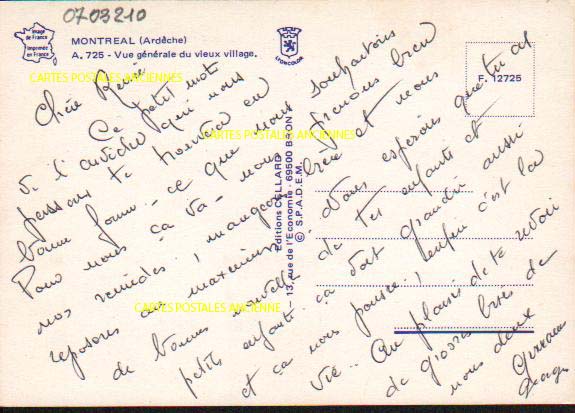 0703210
Image
de France
Imprimée
en France
MONTREAL (Ardèche)
A. 725 - Vue générale du vieux village.
LYONCOLOR
F. 12725
CARTES POSTALES ANCIENNES
CARTES POSTALES ANCIENNES
CARTES POSTALES ANCIENNE
Editions CELLARD
13, rue de l'Economie - 69500 BRON
© S.P.A.D.E.M.
Chère Renée
Ce petit mot
de l'ardèche où nous
passons te trouvera en
bonne forme - ce que nous souhaitons
Pour nous ça va - nous prenons bien
nos remèdes, mangeons bien et nous
reposons au maximum. Nous espérons que tu as
de bonnes nouvelles de tes enfants et
petits enfants. ça doit grandir aussi
et ça nous pousse, enfin c'est la
vie - Au plaisir de te revoir
de grosses bises de
nous deux
Georges